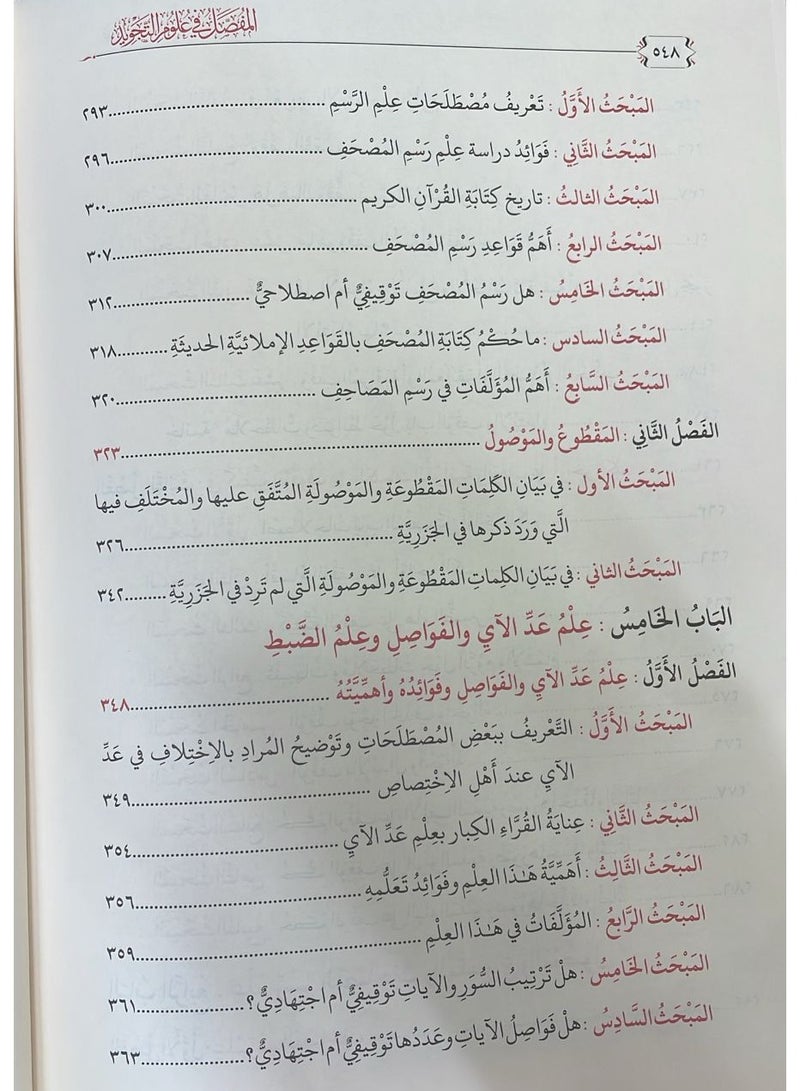 المُفَصَّلُ فِي عُلُومِ التَّجْوِيدِ
٥٤٨
المَبْحَثُ الأَوَّلُ : تَعْرِيفُ مُصْطَلَحَاتِ عِلْمِ الرَّسْمِ ................ ٢٩٣
المَبْحَثُ الثَّانِي : فَوَائِدُ دراسة عِلْمِ رَسْمِ المُصْحَفِ ................ ٢٩٦
المَبْحَثُ الثالثُ : تاريخ كِتَابَةِ القُرْآنِ الكريم ................ ٣٠٠
المَبْحَثُ الرابعُ : أَهَمُّ قَوَاعِدِ رَسْمِ المُصْحَفِ ................ ٣٠٧
المَبْحَثُ الخَامِسُ : هل رَسْمُ المُصْحَفِ تَوْقِيفِيٌّ أم اصطلاحيٌّ ................ ٣١٢
المَبْحَثُ السادس : ما حُكْمُ كِتَابَةِ المُصْحَفِ بالقَوَاعِدِ الإملائيَّةِ الحديثَةِ .......... ٣١٨
المَبْحَثُ السَّابِعُ : أَهَمُّ المُؤَلَّفَاتِ في رَسْمِ المَصَاحِفِ ................ ٣٢٠
الفَصْلُ الثَّانِي : المَقْطُوعُ والمَوْصُولُ ................ ٣٢٣
المَبْحَثُ الأول : في بَيَانِ الكَلِمَاتِ المَقْطُوعَةِ والمَوْصُولَةِ المُتَّفَقِ عليها والمُخْتَلَفِ فيها
الَّتي وَرَدَ ذكرها في الجَزَرِيَّةِ ................ ٣٢٦
المَبْحَثُ الثاني : في بَيَانِ الكلِماتِ المَقْطُوعَةِ والمَوْصُولَةِ الَّتي لم تَرِدْ في الجَزَرِيَّةِ .......... ٣٤٢
البَابُ الخَامِسُ : عِلْمُ عَدِّ الآيِ والفَوَاصِلِ وعِلْمُ الضَّبْطِ
الفَصْلُ الأَوَّلُ : عِلْمُ عَدِّ الآيِ والفَوَاصِلِ وفَوَائِدُهُ وأَهمِّيَّتُهُ ................ ٣٤٨
المَبْحَثُ الأَوَّلُ : التَّعْرِيفُ بِبَعْضِ المُصْطَلَحَاتِ وتَوْضِيحُ المُرادِ بالاِخْتِلافِ في عَدِّ
الآيِ عندَ أَهْلِ الاِخْتِصاصِ ................ ٣٤٩
المَبْحَثُ الثَّانِي : عِنايَةُ القُرَّاءِ الكِبار بعِلْمِ عَدِّ الآيِ ................ ٣٥٤
المَبْحَثُ الثَّالِثُ : أَهَمِّيَّةُ هَـٰذَا العِلْمِ وفَوَائِدُ تَعَلُّمِهِ ................ ٣٥٦
المَبْحَثُ الرَّابِعُ : المُؤَلَّفَاتُ في هَـٰذَا العِلْمِ ................ ٣٥٩
المَبْحَثُ الخَامِسُ : هلْ تَرْتِيبُ السُّوَرِ والآياتِ تَوْقِيفِيٌّ أم اجْتِهَادِيٌّ ؟ ................ ٣٦١
المَبْحَثُ السَّادِسُ : هلْ فَوَاصِلُ الآيَاتِ وعَدَدُها تَوْقِيفِيٌّ أم اجْتِهادِيٌّ ؟ ................ ٣٦٣